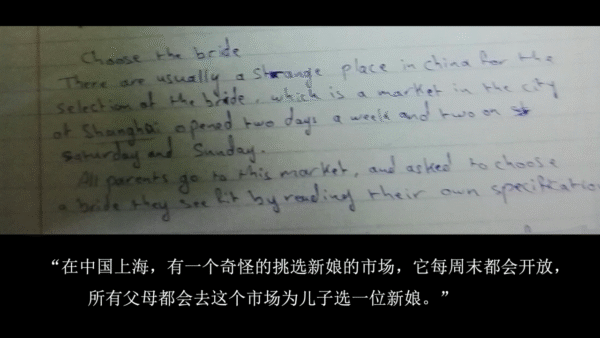 Choose the bride
There are usually a strange place in china for the
selection of the bride, which is a market in the city
of Shanghai opened two days a week and two on
Saturday and Sunday.
All parents go to this market, and asked to choose
a bride they see fit by reading their own specification
“在中国上海，有一个奇怪的挑选新娘的市场，它每周末都会开放，
所有父母都会去这个市场为儿子选一位新娘。”